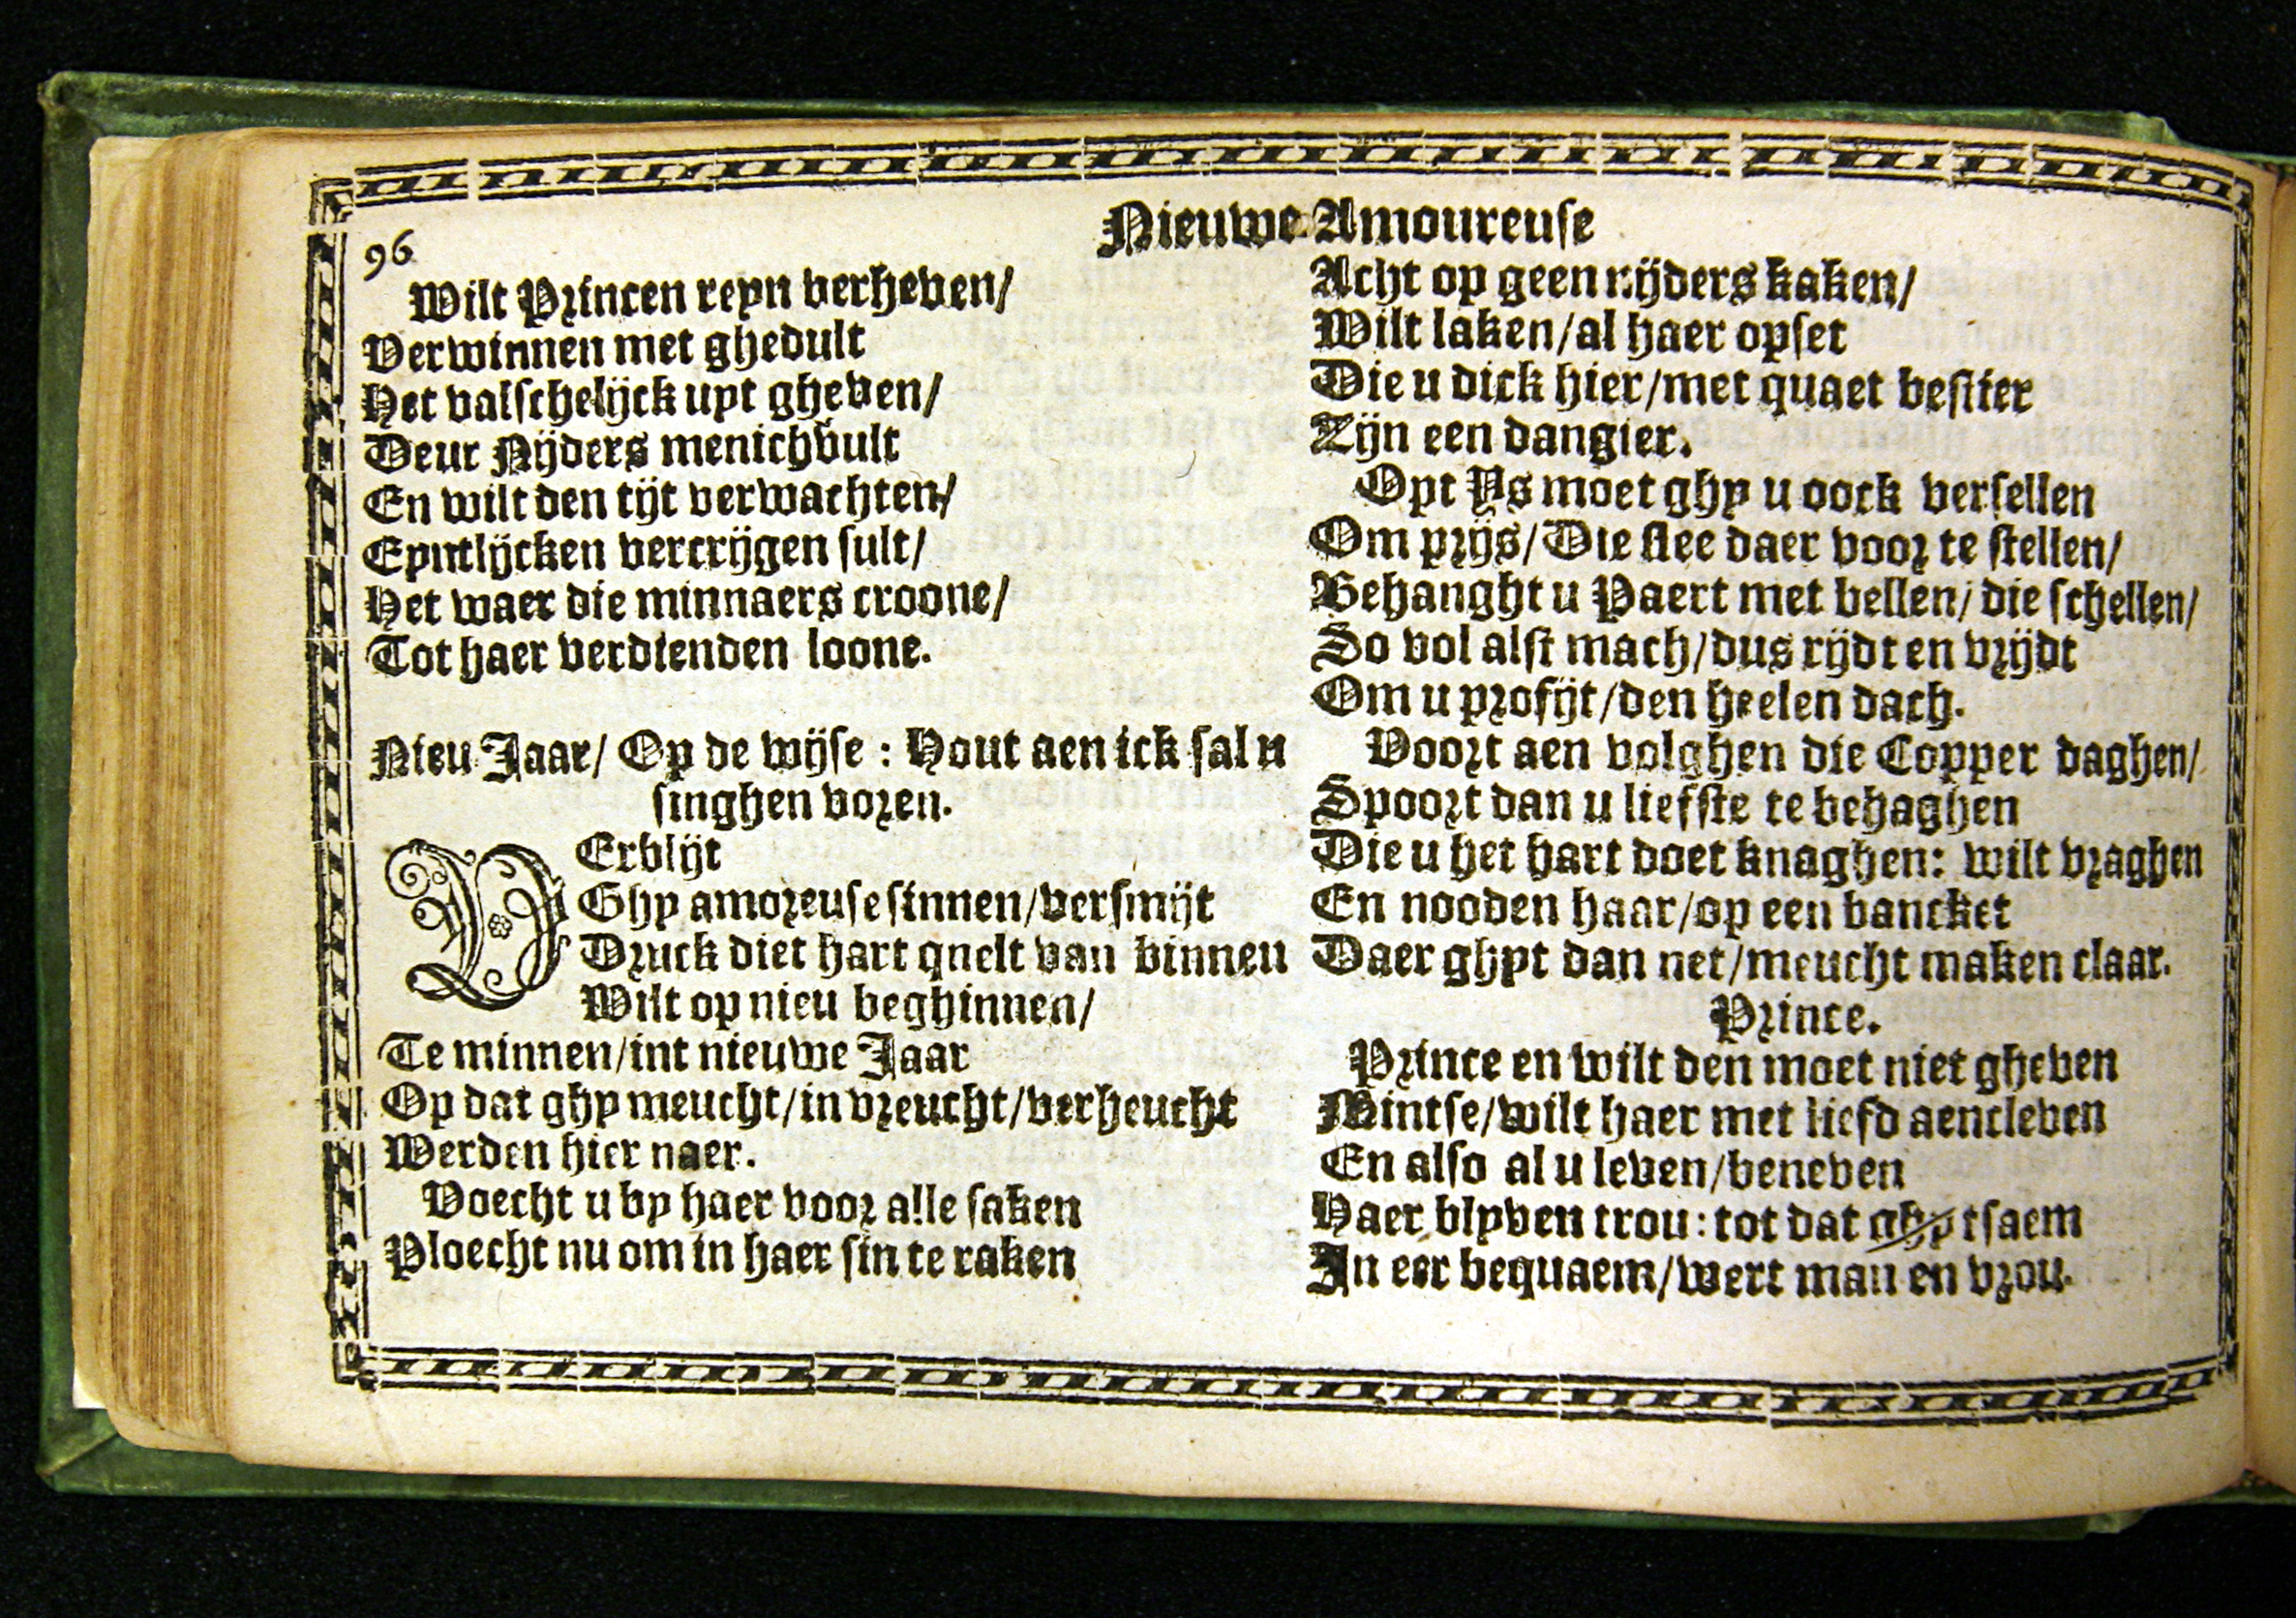 96
Nieuwe Amoureuse
Wilt Princen reyn verheven/
Verwinnen met ghedult
Het valschelijck uyt gheven/
Deur Nijders menichvult
En wilt den tijt verwachten/
Eyntlijcken vercrijgen sult/
Het waer die minnaers croone/
Tot haer verdienden loone.
Nieu Jaar/ Op de wijse: Hout aen ick sal u
singhen voren.
VErblijt
Ghy amoreuse sinnen/versmijt
Druck diet hart quelt van binnen
Wilt op nieu beghinnen/
Te minnen/int nieuwe Jaar
Op dat ghy meucht/in vreucht/verheucht
Werden hier naer.
Voecht u by haer voor alle saken
Ploecht nu om in haer sin te raken
Acht op geen nijders kaken/
Wilt laken/al haer opset
Die u dick hier/met quaet bestier
Zijn een dangier.
Opt Ys moet ghy u oock versellen
Om prijs/Die slee daer voor te stellen/
Behanght u Paert met bellen/die schellen/
So vol alst mach/dus rijdt en vrijdt
Om u profijt/den heelen dach.
Voort aen volghen die Copper daghen/
Spoort dan u liefste te behaghen
Die u het hart doet knaghen: wilt vraghen
En nooden haar/op een bancket
Daer ghyt dan net/meucht maken claar.
Prince.
Prince en wilt den moet niet gheven
Mintse/wilt haer met liefd aencleven
En also al u leven/beneven
Haer blyven trou: tot dat ghy tsaem
In eer bequaem/wert man en vrou.